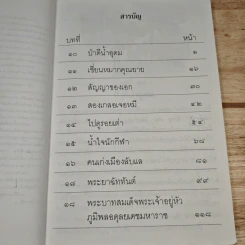 สารบัญ
บทที่ หน้า
๑๐ ป่าดีน้ำอุดม ๑
๑๑ เขียนหมากคุณยาย ๑๖
๑๒ สัญญาของเอก ๓๐
๑๓ สองเกลอเจอหมี ๔๒
๑๔ ไปดูรอยเต่า ๕๔
๑๕ น้ำใจนักกีฬา ๖๘
๑๖ คนเก่งเมืองลับแล ๘๑
๑๗ พระยาฉัททันต์ ๙๙
๑๘ พระบาทสมเด็จพระเจ้าอยู่หัว
ภูมิพลอดุลยเดชมหาราช ๑๑๘